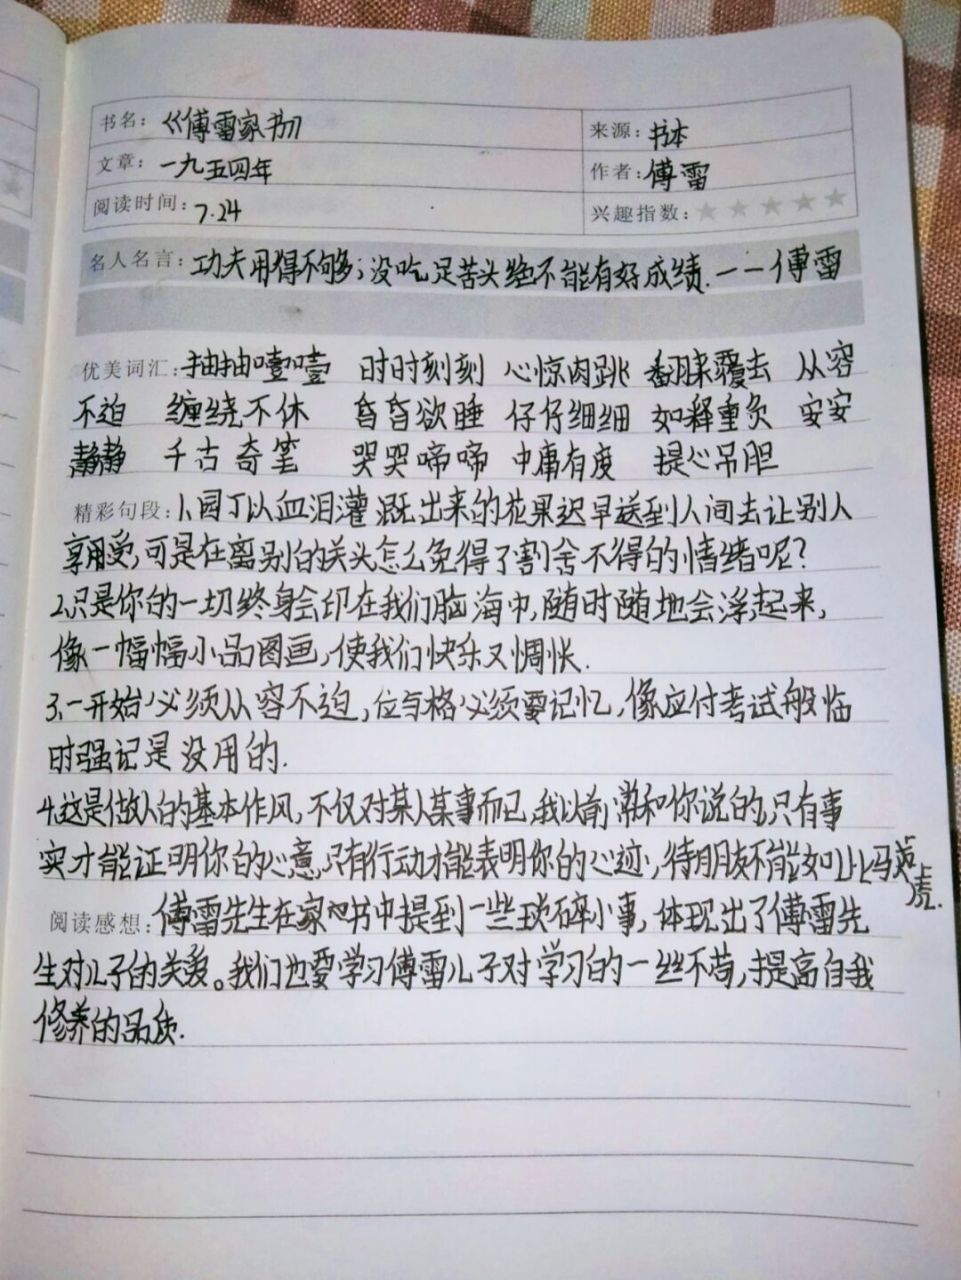 书名：《傅雷家书》 来源：书本
文章：一九五四年 作者：傅雷
阅读时间：7.24 兴趣指数：★★★★★
名人名言：功夫用得不够；没吃足苦头绝不能有好成绩.——傅雷
优美词汇：抽抽噎噎 时时刻刻 心惊肉跳 翻来覆去 从容
不迫 缠绕不休 昏昏欲睡 仔仔细细 如释重负 安安
静静 千古奇笔 哭哭啼啼 中庸有度 提心吊胆
精彩句段：1、园丁以血泪灌溉出来的花果迟早送到人间去让别人
享用受,可是在离别的关头怎么免得了割舍不得的情绪呢?
2、只是你的一切终身会印在我们脑海中,随时随地会浮起来,
像一幅幅小品图画,使我们快乐又惆怅.
3、一开始必须从容不迫,位与格必须要记忆,像应付考试般临
时强记是没用的.
4、这是做人的基本作风,不仅对某人某事而已,我以前常和你说的,只有事
实才能证明你的心意,只有行动才能表明你的心迹,待朋友不能如此马虎.
阅读感想：傅雷先生在家书中提到一些琐碎小事,体现出了傅雷先
生对儿子的关爱。我们也要学习傅雷儿子对学习的一丝不苟,提高自我
修养的品质.